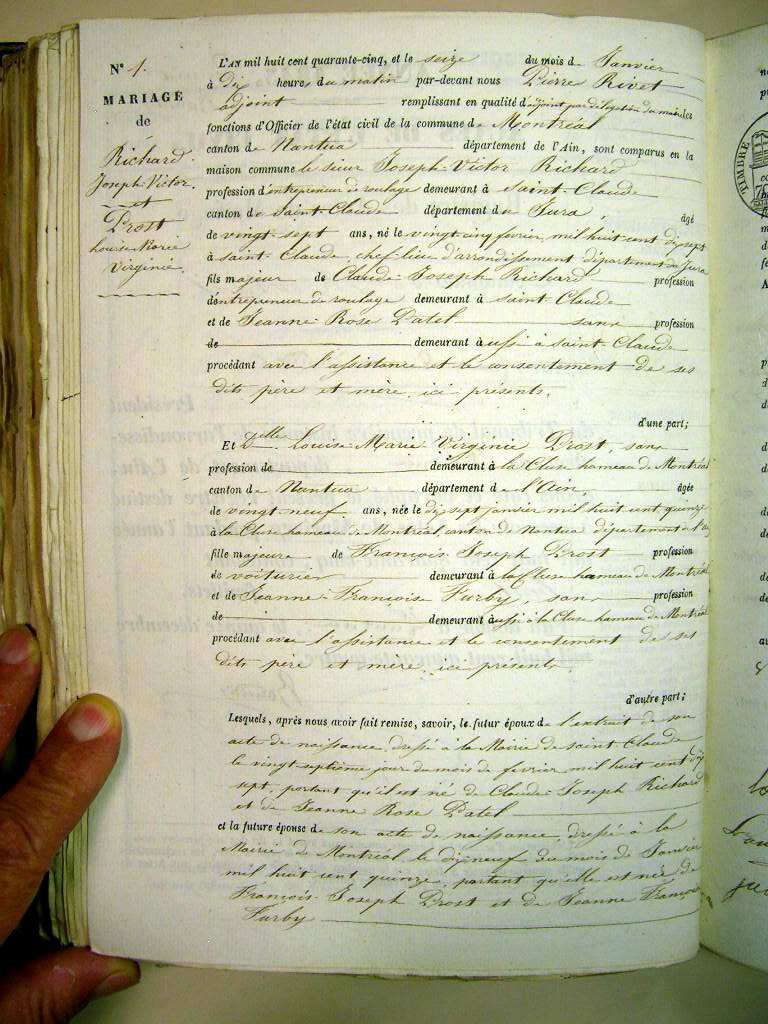 N° 1.
MARIAGE
de
Richard
Joseph-Victor.
et
Prost
Louise Marie
Virginie.
L'AN mil huit cent quarante-cinq, et le seize du mois de Janvier
à dix heure du matin par-devant nous Pierre Rivet
adjoint remplissant en qualité d'adjoint par délégation du maire les
fonctions d'Officier de l'état civil de la commune de Montréal
canton de Nantua département de l'Ain, sont comparus en la
maison commune le sieur Joseph-Victor Richard
profession d'entrepreneur de roulage demeurant à Saint-Claude
canton de Saint-Claude département de Jura, âgé
de vingt-sept ans, né le vingt cinq fevrier mil huit cent dix sept
à Saint-Claude, chef-lieu d'arrondissement département du Jura
fils majeur de Claude-Joseph Richard profession
d'entrepreneur de roulage demeurant à Saint-Claude
et de Jeanne-Rose Patel sans profession
de demeurant à ussi à Saint-Claude
procédant avec l'assistance et le consentement de ses
dits père et mère, ici présents.
d'une part;
Et Dlle Louise-Marie Virginie Prost, sans
profession de demeurant à la Cluse hameau de Montréal
canton de Nantua département de l'Ain, âgée
de vingt-neuf ans, née le dix sept janvier mil huit cent quinze
à la Cluse hameau de Montréal canton de Nantua département de l'Ain
fille majeure de François Joseph Prost profession
de voiturier demeurant à la Cluse hameau de Montréal
et de Jeanne-Françoise Furby sans profession
de demeurant à ussi à la Cluse hameau de Montréal
procédant avec l'assistance et le consentement de ses
dits père et mère ici présents.
d'autre part;
Lesquels, après nous avoir fait remise, savoir, le futur époux de l'extrait de son
acte de naissance, dressé à la Mairie de Saint-Claude
le vingt-septième jour du mois de fevrier mil huit cent dix
sept, portant qu'il est né de Claude-Joseph Richard
et de Jeanne Rose Patel
et la future épouse de son acte de naissance, dressé à la
Mairie de Montréal le dix neuf du mois de Janvier
mil huit cent quinze, portant qu'elle est née de
François-Joseph Prost et de Jeanne Françoise
Furby
TIMBRE